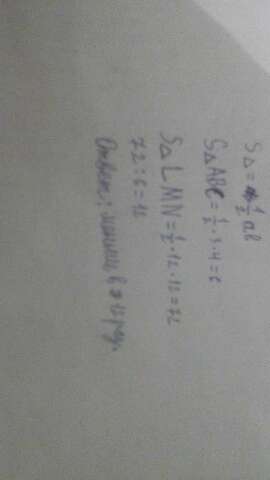 S△ = 1/2 ab
S△ABC = 1/2 · 3 · 4 = 6
S△LMN = 1/2 · 12 · 12 = 72
72 : 6 = 12
Ответ: в 12 раз.